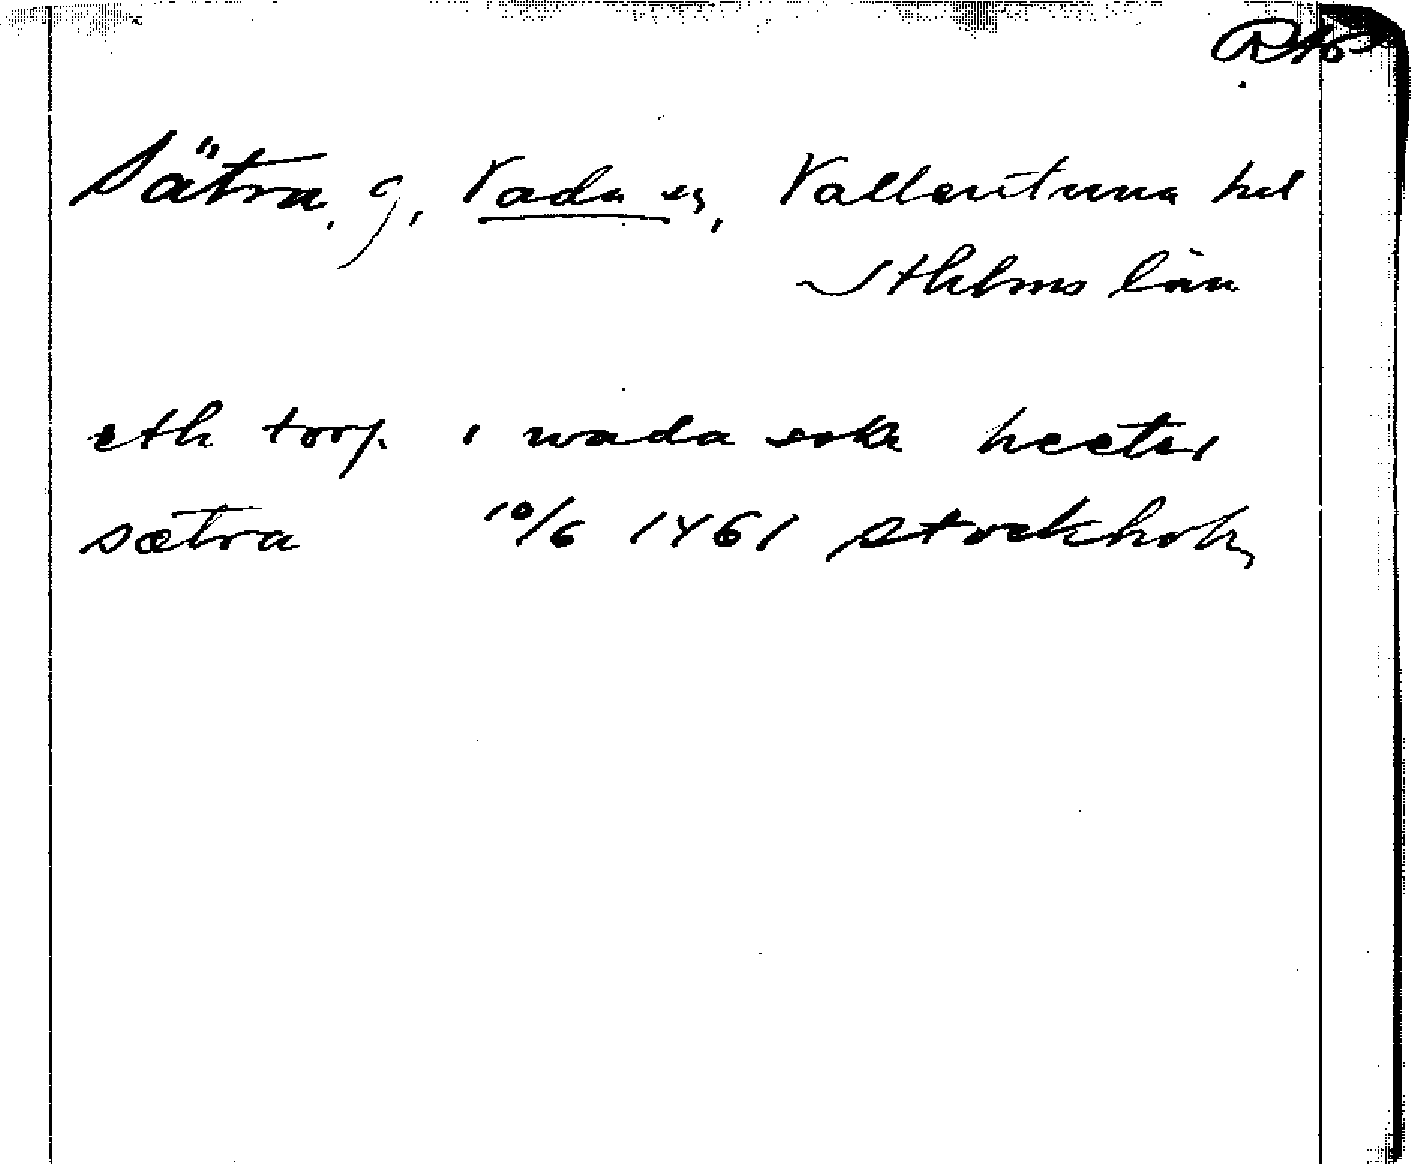 Sätra, g, Vada sn, Vallentuna hd
Sthlms län
eth torp i wada sokn heeter
sætra 10/6 1461 Stockholm